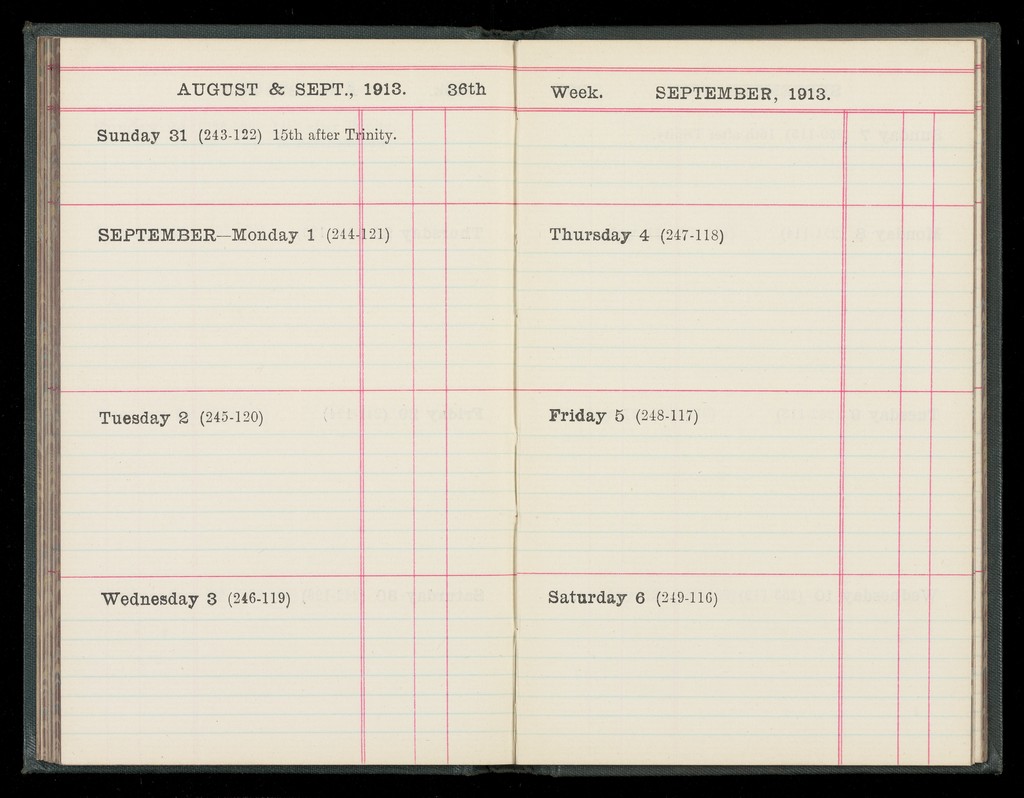 AUGUST & SEPT., 1913. 36th
Sunday 31 (243-122) 15th after Trinity.
SEPTEMBER—Monday 1 (244-121)
Tuesday 2 (245-120)
Wednesday 3 (246-119)
Week. SEPTEMBER, 1913.
Thursday 4 (247-118)
Friday 5 (248-117)
Saturday 6 (249-116)